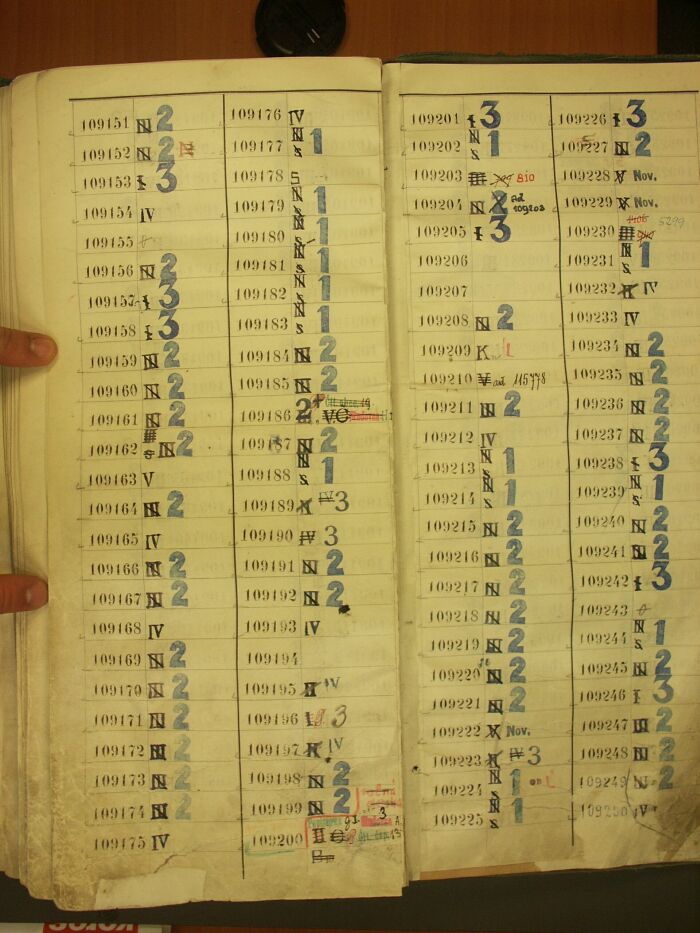 109151 N 2
109152 N 2 N
109153 I 3
109154 IV
109155
109156 N 2
109157 I 3
109158 I 3
109159 N 2
109160 N 2
109161 N 2
109162 S N 2
109163 V
109164 N 2
109165 IV
109166 N 2
109167 N 2
109168 IV
109169 N 2
109170 N 2
109171 N 2
109172 N 2
109173 N 2
109174 N 2
109175 IV
109176 IV
109177 N S 1
109178 S
109179 N S 1
109180 N S 1
109181 N S 1
109182 N S 1
109183 N S 1
109184 N 2
109185 N 2
109186
109187 N 2
109188 N S 1
109189 IV 3
109190 IV 3
109191 N 2
109192 N 2
109193 IV
109194
109195 IV
109196 I g. 3
109197 IV
109198 N 2
109199 N 2
109200 II
109201 I 3
109202 N S 1
109203 Bio
109204 N 2 Ad 109203
109205 I 3
109206
109207
109208 N 2
109209 K L
109210 V ad 115778
109211 N 2
109212 IV
109213 N S 1
109214 N S 1
109215 N 2
109216 N 2
109217 N 2
109218 N 2
109219 N 2
109220 N 2
109221 N 2
109222 V Nov.
109223 IV 3
109224 N S 1 L
109225 N S 1
109226 I 3
109227 N 2
109228 V Nov.
109229 V Nov.
109230 5299
109231 N S 1
109232 IV
109233 IV
109234 N 2
109235 N 2
109236 N 2
109237 N 2
109238 I 3
109239 N S 1
109240 N 2
109241 N 2
109242 I 3
109243
109244 N S 1
109245 N 2
109246 I 3
109247 N 2
109248 N 2
109249 N 2
109250 IV